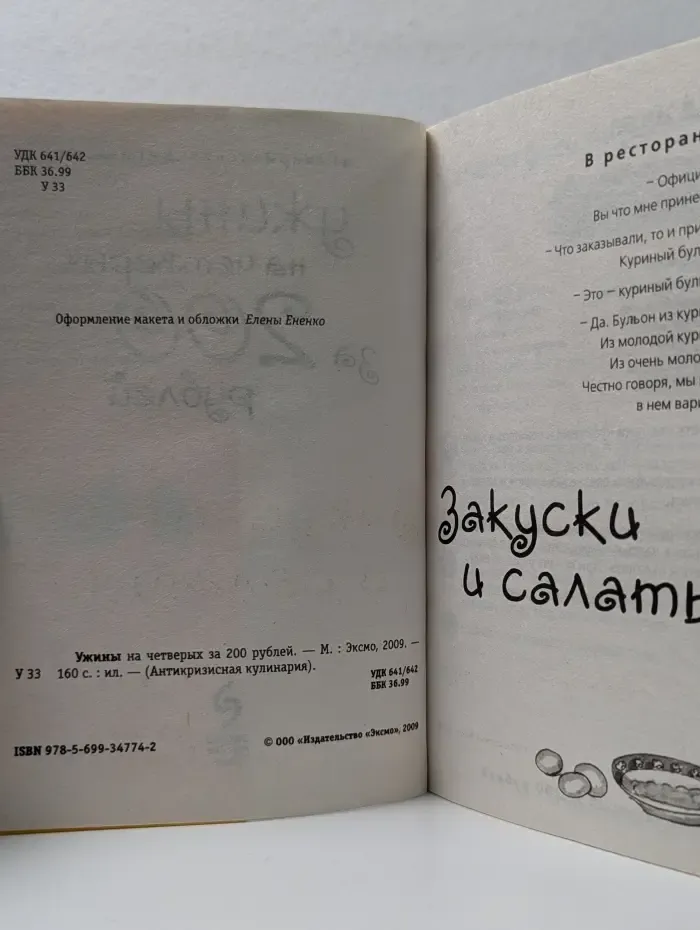 УДК 641/642
ББК 36.99
У 33
Оформление макета и обложки Елены Ененко
Ужины на четверых за 200 рублей. — М. : Эксмо, 2009. —
У 33 160 с. : ил. — (Антикризисная кулинария).
УДК 641/642
ББК 36.99
ISBN 978-5-699-34774-2
© ООО «Издательство «Эксмо», 2009
В ресторан
– Офици
Вы что мне прине
– Что заказывали, то и при
Куриный бул
– Это – куриный буль
– Да. Бульон из кури
Из молодой кури
Из очень моло
Честно говоря, мы
в нем вари
Закуски
и салаты